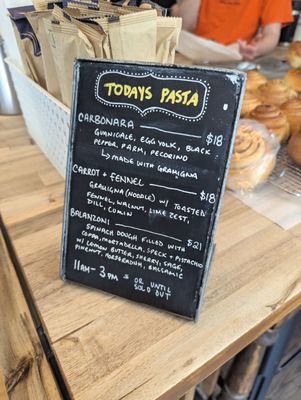 TODAYS PASTA
CARBONARA $18
GUANICALE, EGG YOLK, BLACK
PEPPER, PARM, PECORINO
↳ MADE WITH GRAMIGNA
CARROT + FENNEL $18
GRAMIGNA (NOODLE) W/ TOASTED
FENNEL, WALNUT, LIME ZEST,
DILL, CUMIN
BALANZONI $21
SPINACH DOUGH FILLED WITH
COPPA, MORTADELLA, SPECK + PISTACHIO
W/ LEMON BUTTER, SHERRY, SAGE,
PINENUT, BALSAMIC
11AM - 3PM OR UNTIL
SOLD OUT